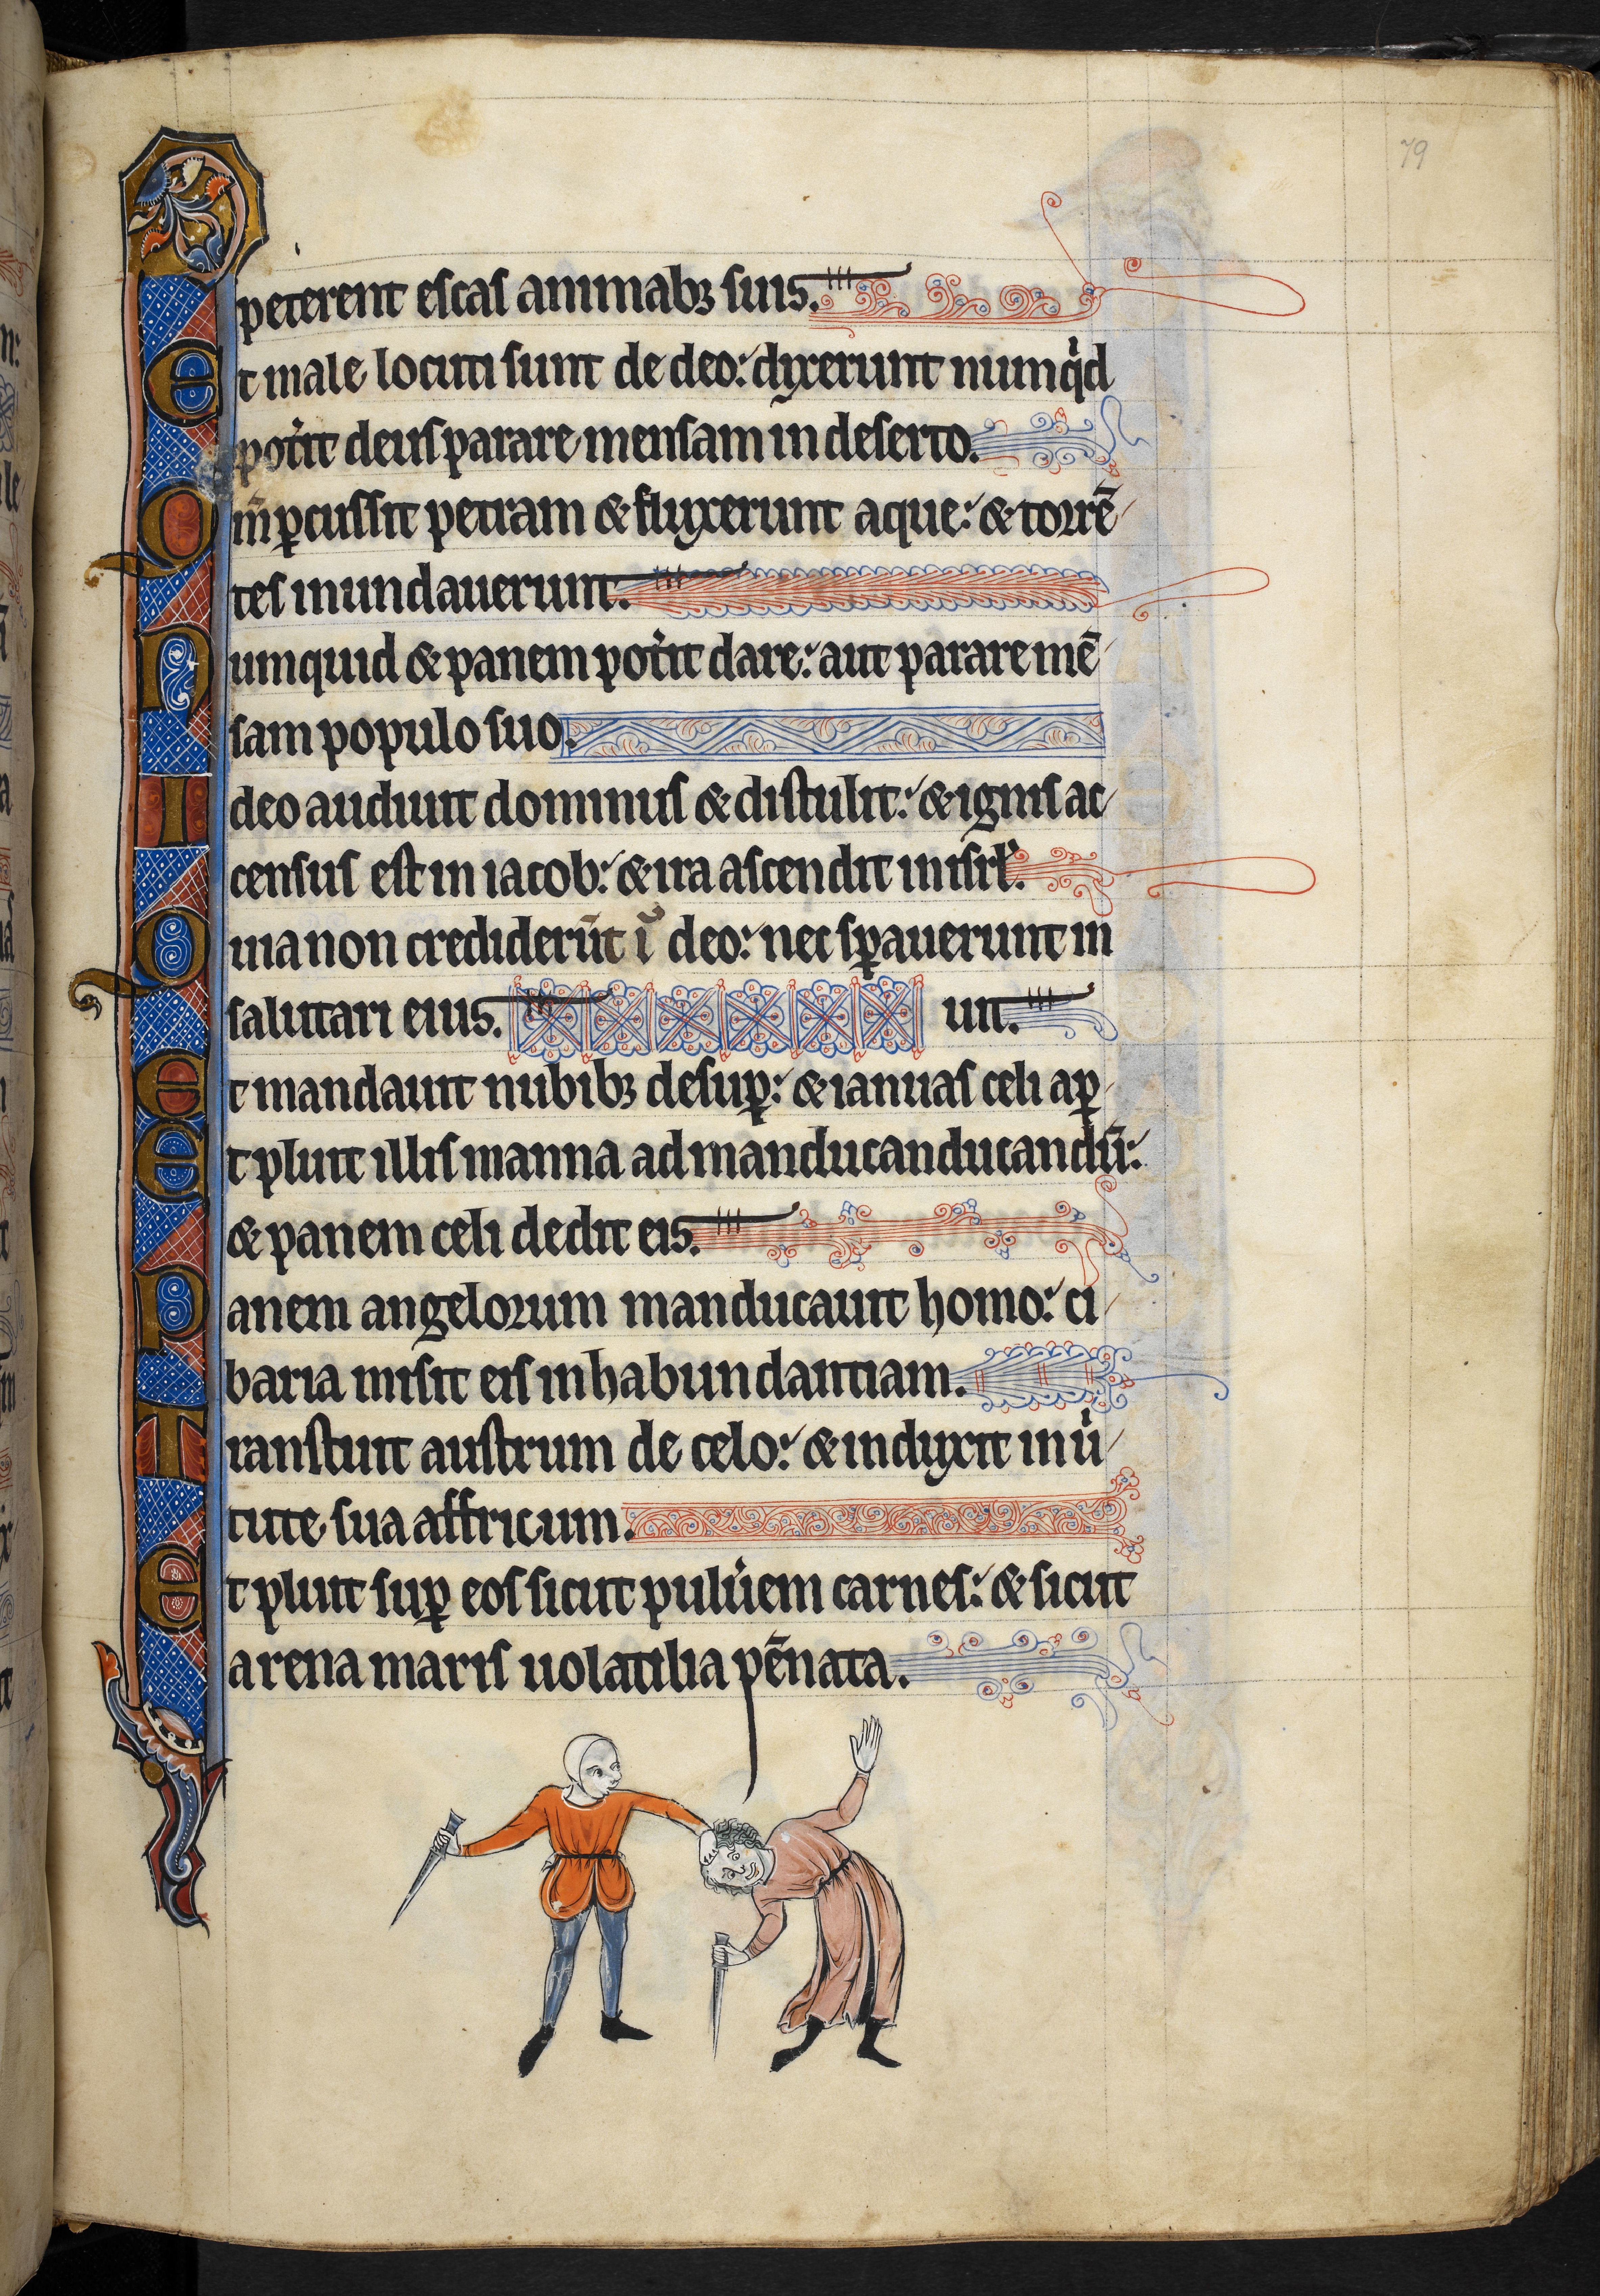 79
peterent escas animabꝫ suis.
Et male locuti sunt de deo: dixerunt numqͥd
pot̾it deus parare mensam in deserto.
Qm̄ ꝑcussit petram & fluxerunt aque: & torrē
tes inundauerunt.
Numquid & panem pot̾it dare: aut parare mē
sam populo suo.
Ideo audiuit dominus & distulit: & ignis ac
census est in iacob: & ira ascendit in isrł.
Quia non crediderūt ī deo: nec sꝑauerunt in
salutari eius. uit.
Et mandauit nubibꝫ desuꝑ: & ianuas celi aꝑ
Et pluit illis manna ad manducanducandū:
& panem celi dedit eis.
Panem angelorum manducauit homo: ci
baria misit eis in habundantiam.
Transtuit austrum de celo: & induxit in uͥ
tute sua affricum.
Et pluit suꝑ eos sicut pulu̾em carnes: & sicut
arena maris uolatilia pēnata.